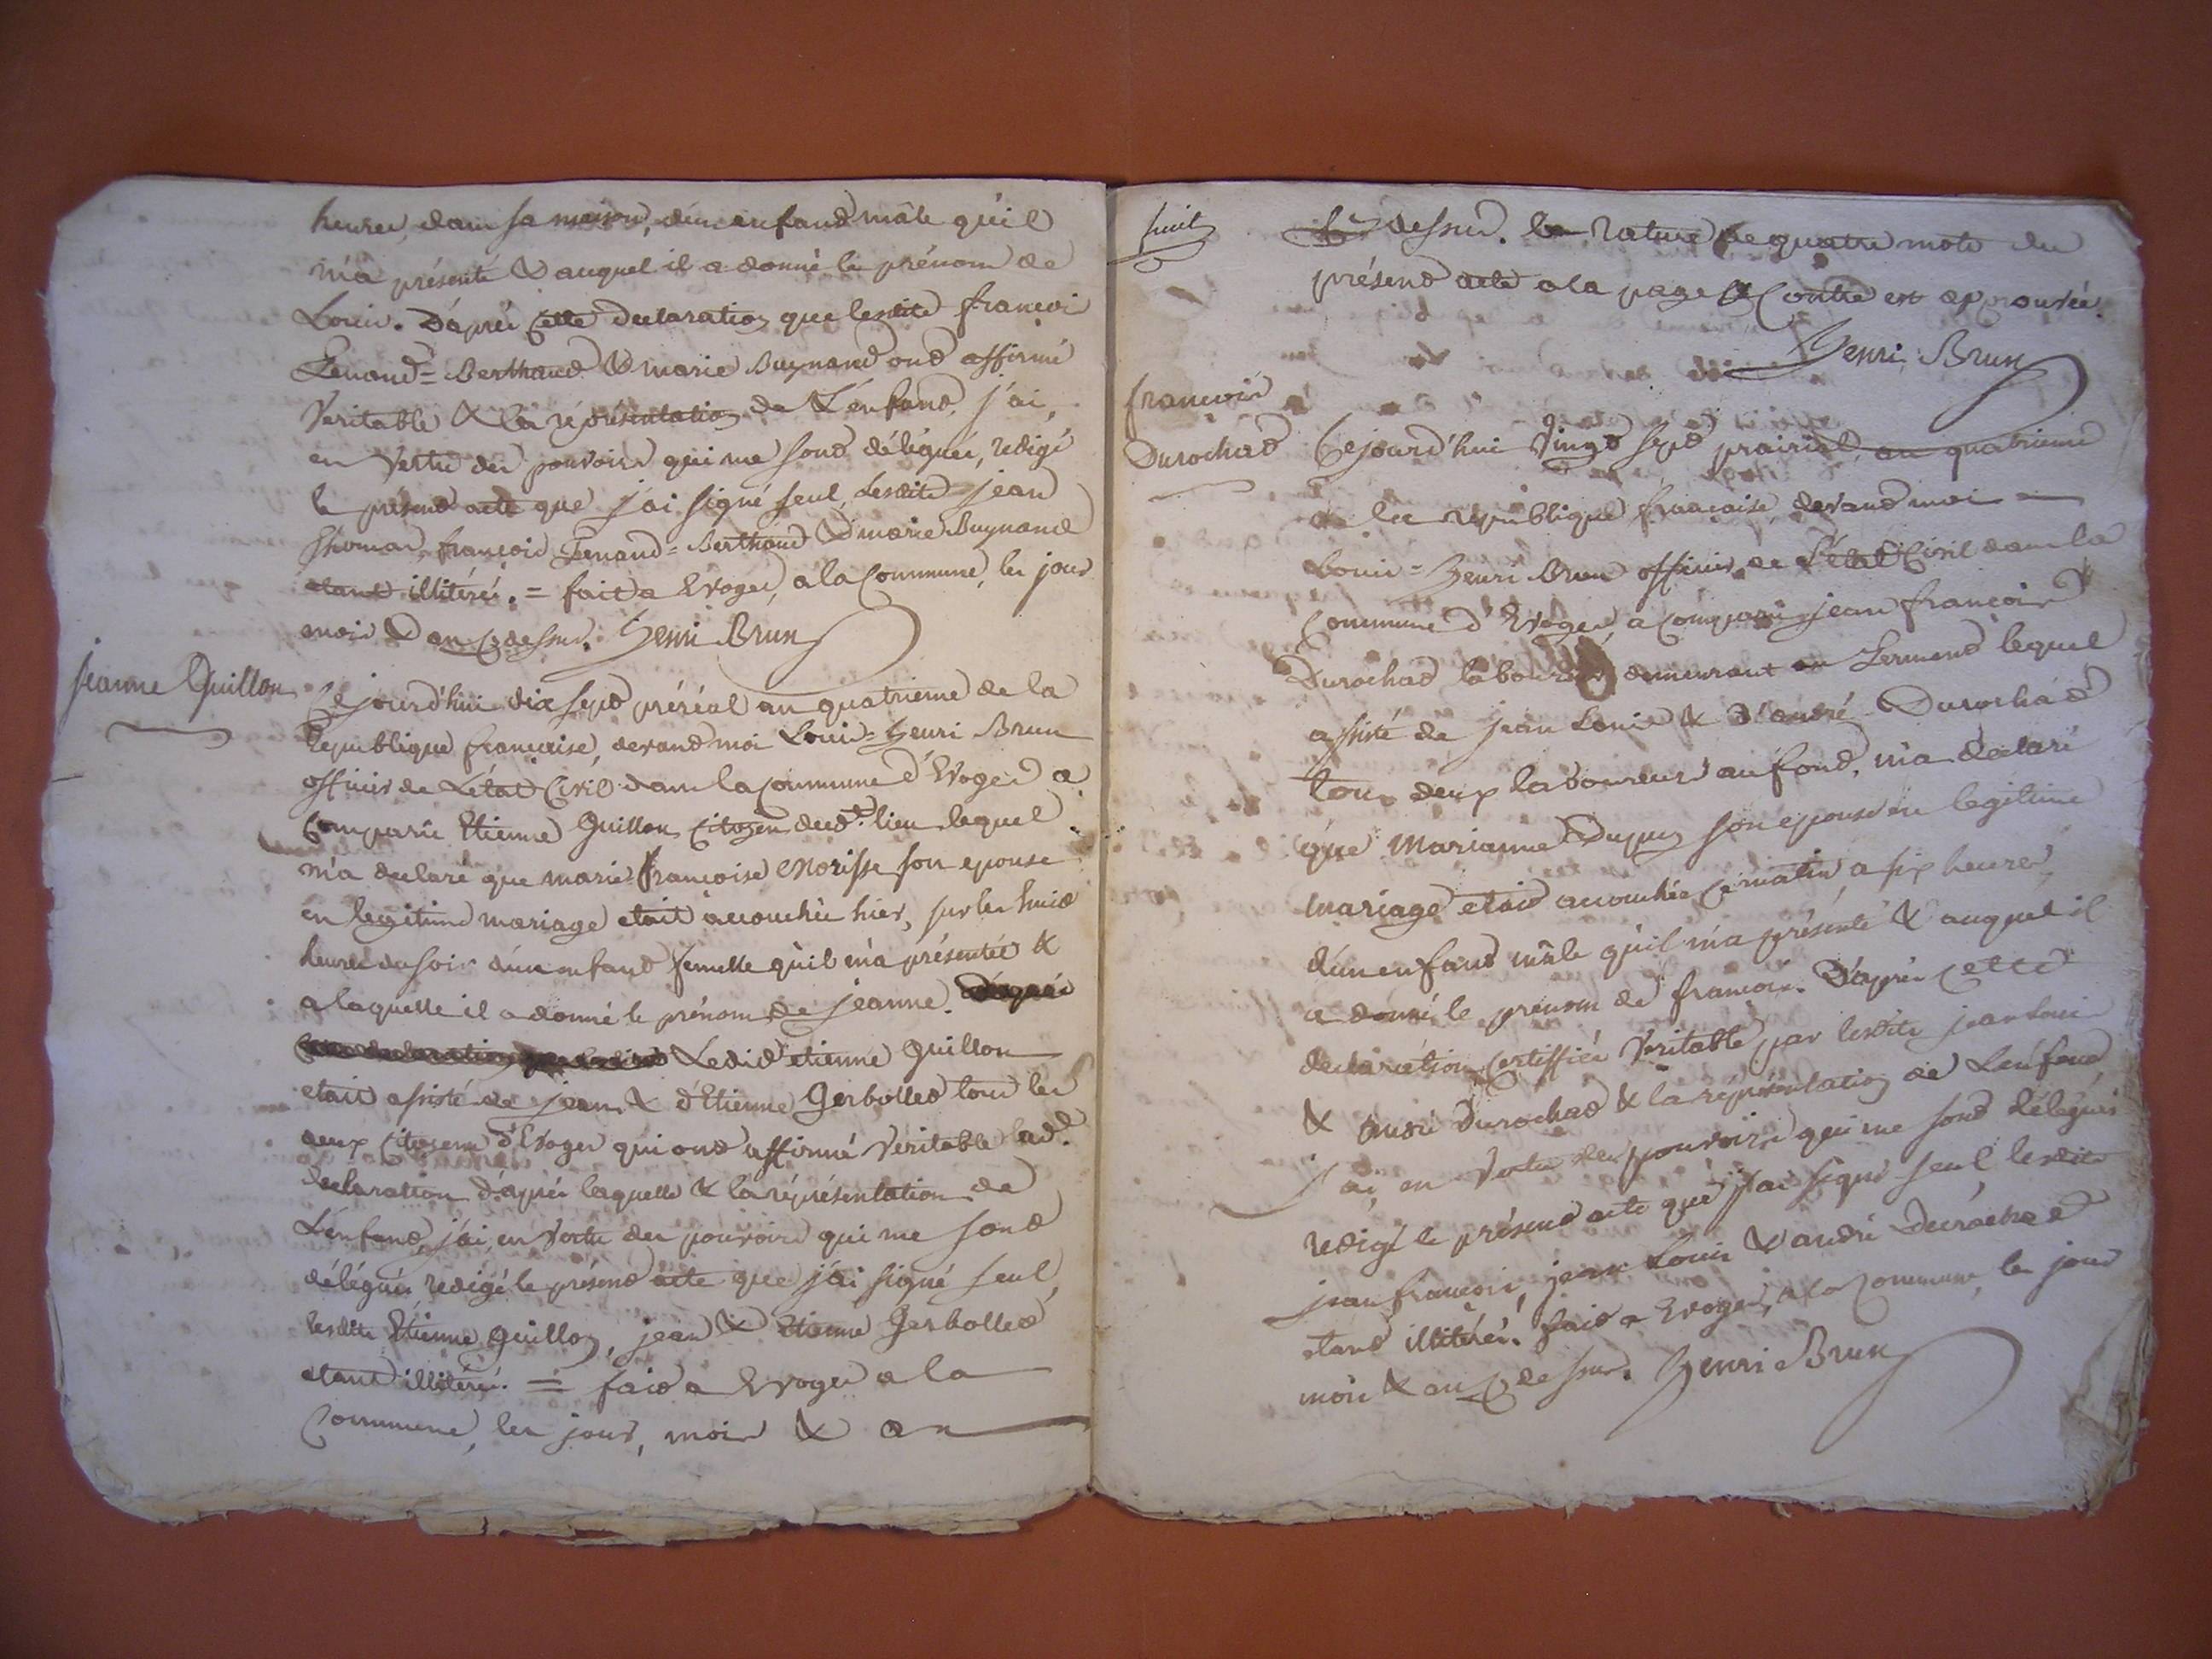 heures, dans sa maison, d'un enfant mâle qu'il
m'a présenté & auquel il a donné le prénom de
Louis. D'après cette declaration que lesdits françois
Genand=Berthaud & marie Buynand ont affirmé
veritable & la représentation de L'enfant, j'ai,
en vertu des pouvoirs qui me sont délégués, redigé
le présent acte que j'ai signé seul, Lesdits jean
thomas, françois Genand=Berthaud & marie Buynand
etant illitérés. = fait a Evoges, a la Commune, les jour
mois & an Cy dessus. Henri Brun
jeanne Guillon
Cejourd'hui dix sept préréal an quatrieme de la
Republique française, devant moi Louis=Henri Brun
officier de L'état Civil dans la Commune d'Evoges a
Comparu Etienne Guillon Citoyen dud.t lieu lequel
m'a declaré que marie françoise Morisse son epouse
en legitime mariage etait accouchée hier, sur les huit
heures du soir d'un enfant femelle qu'il m'a présentée &
a laquelle il a donné le prénom de jeanne. D'après
declaration Ledit etienne Guillon
etait assisté de jean & d'Etienne Gerbollet tous les
deux Citoyens d'Evoges qui ont affirmé veritable lad.e
declaration d'après laquelle & la réprésentation de
L'enfant, j'ai, en vertu des pouvoirs qui me sont
délégués redigé le présent acte que j'ai signé seul,
lesdits Etienne Guillon, jean & Etienne Gerbollet
etant illitérés. = fait a Evoges a la
Commune, les jour, mois & an
huit
Cy dessus. la rature de quatre mots du
présent acte a la page Cy Contre est approuvée.
Henri Brun
françois
Durochat
Cejourd'hui vingt sept prairial, an quatrieme
de la republique française, devant moi
Louis=Henri Brun officier de L'état Civil dans la
Commune d'Evoges, a comparu jean françois
Durochat laboureur demeurant en lequel
assisté de jean Louis & d'andré Durochat
tous deux laboureurs au fond, m'a déclaré
que Marianne Dupuy son epouse en legitime
mariage etait accouchée ce matin, a six heures,
d'un enfant mâle qu'il m'a présenté & auquel il
a donné le prenom de françois. D'après cette
declaration certiffiée veritable par lesdits jean louis
& andré Durochat & la réprésentation de L'enfant,
j'ai, en vertu des pouvoirs qui me sont délégués
redigé le présent acte que j'ai signé seul, lesdits
jean françois, jean Louis & andré Durochat
etant illitérés. fait a Evoges, a la Commune, les jour
mois & an Cy dessus. Henri Brun